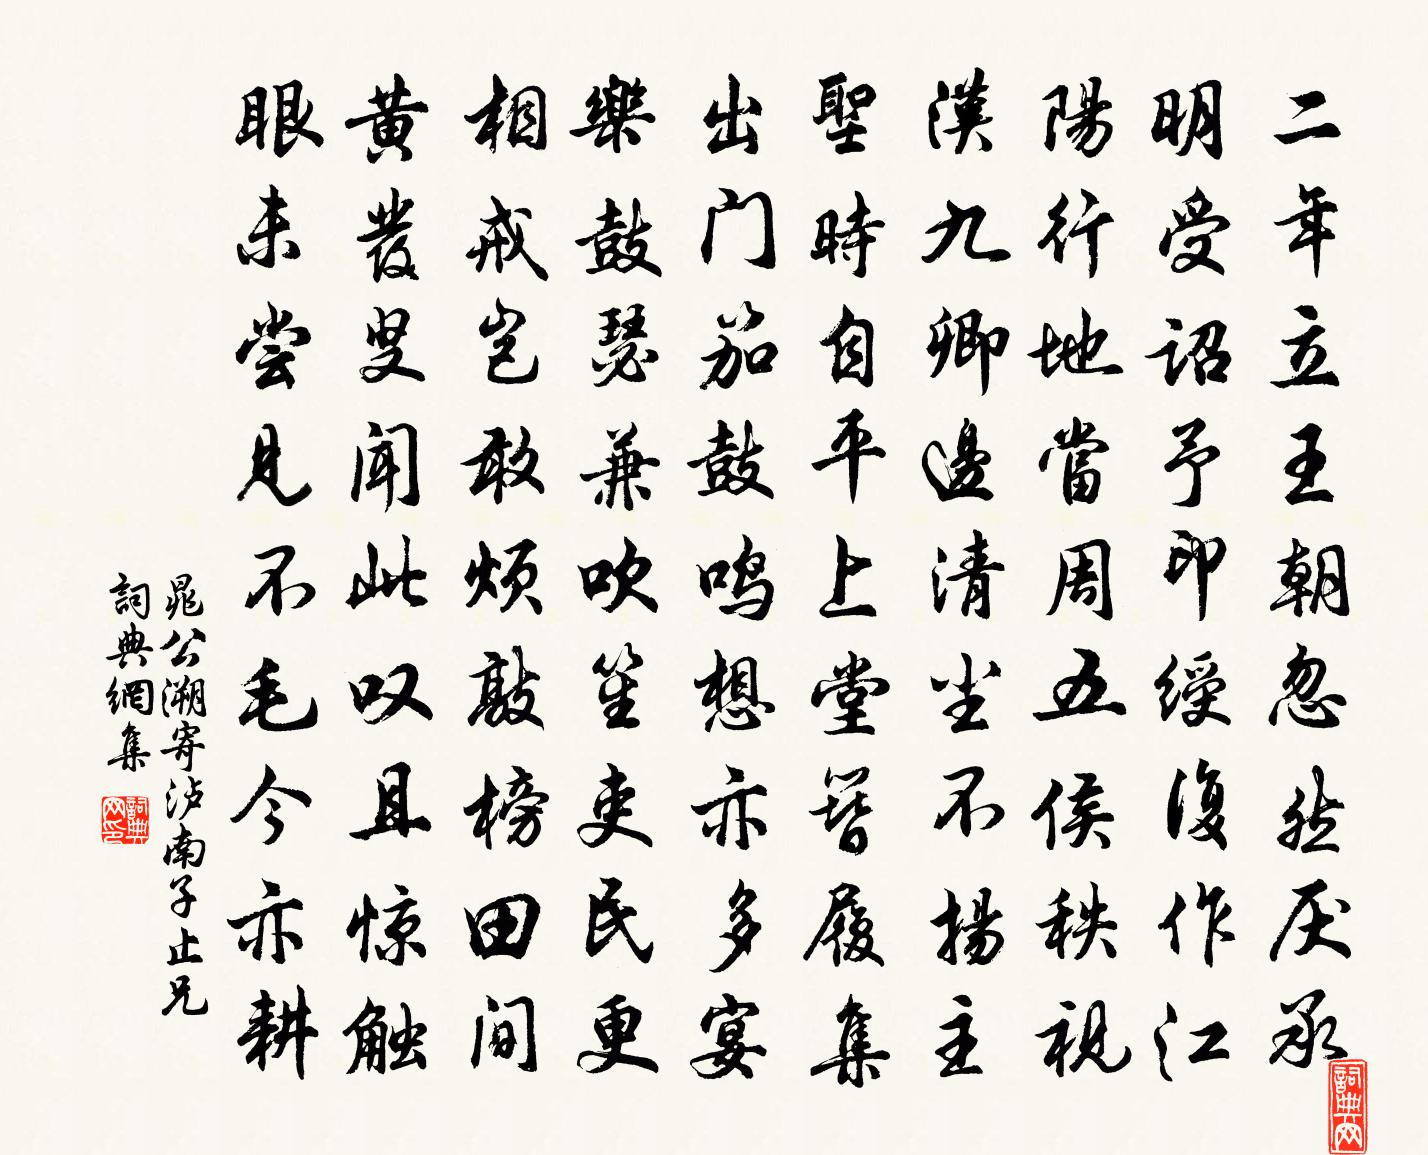 二年立王朝忽然厌承
明受诏予印绶復作江
陽行地當周五侯秩視
漢九卿邊清尘不揚主
聖時自平上堂簪履集
出门笳鼓鸣想亦多宴
樂鼓瑟兼吹笙吏民更
相戒岂敢烦敲榜田间
黄發叟闻此叹且惊触
眼未尝见不毛今亦耕
晁公溯寄泸南子止兄
詞典網集
詞典网
詞典网印